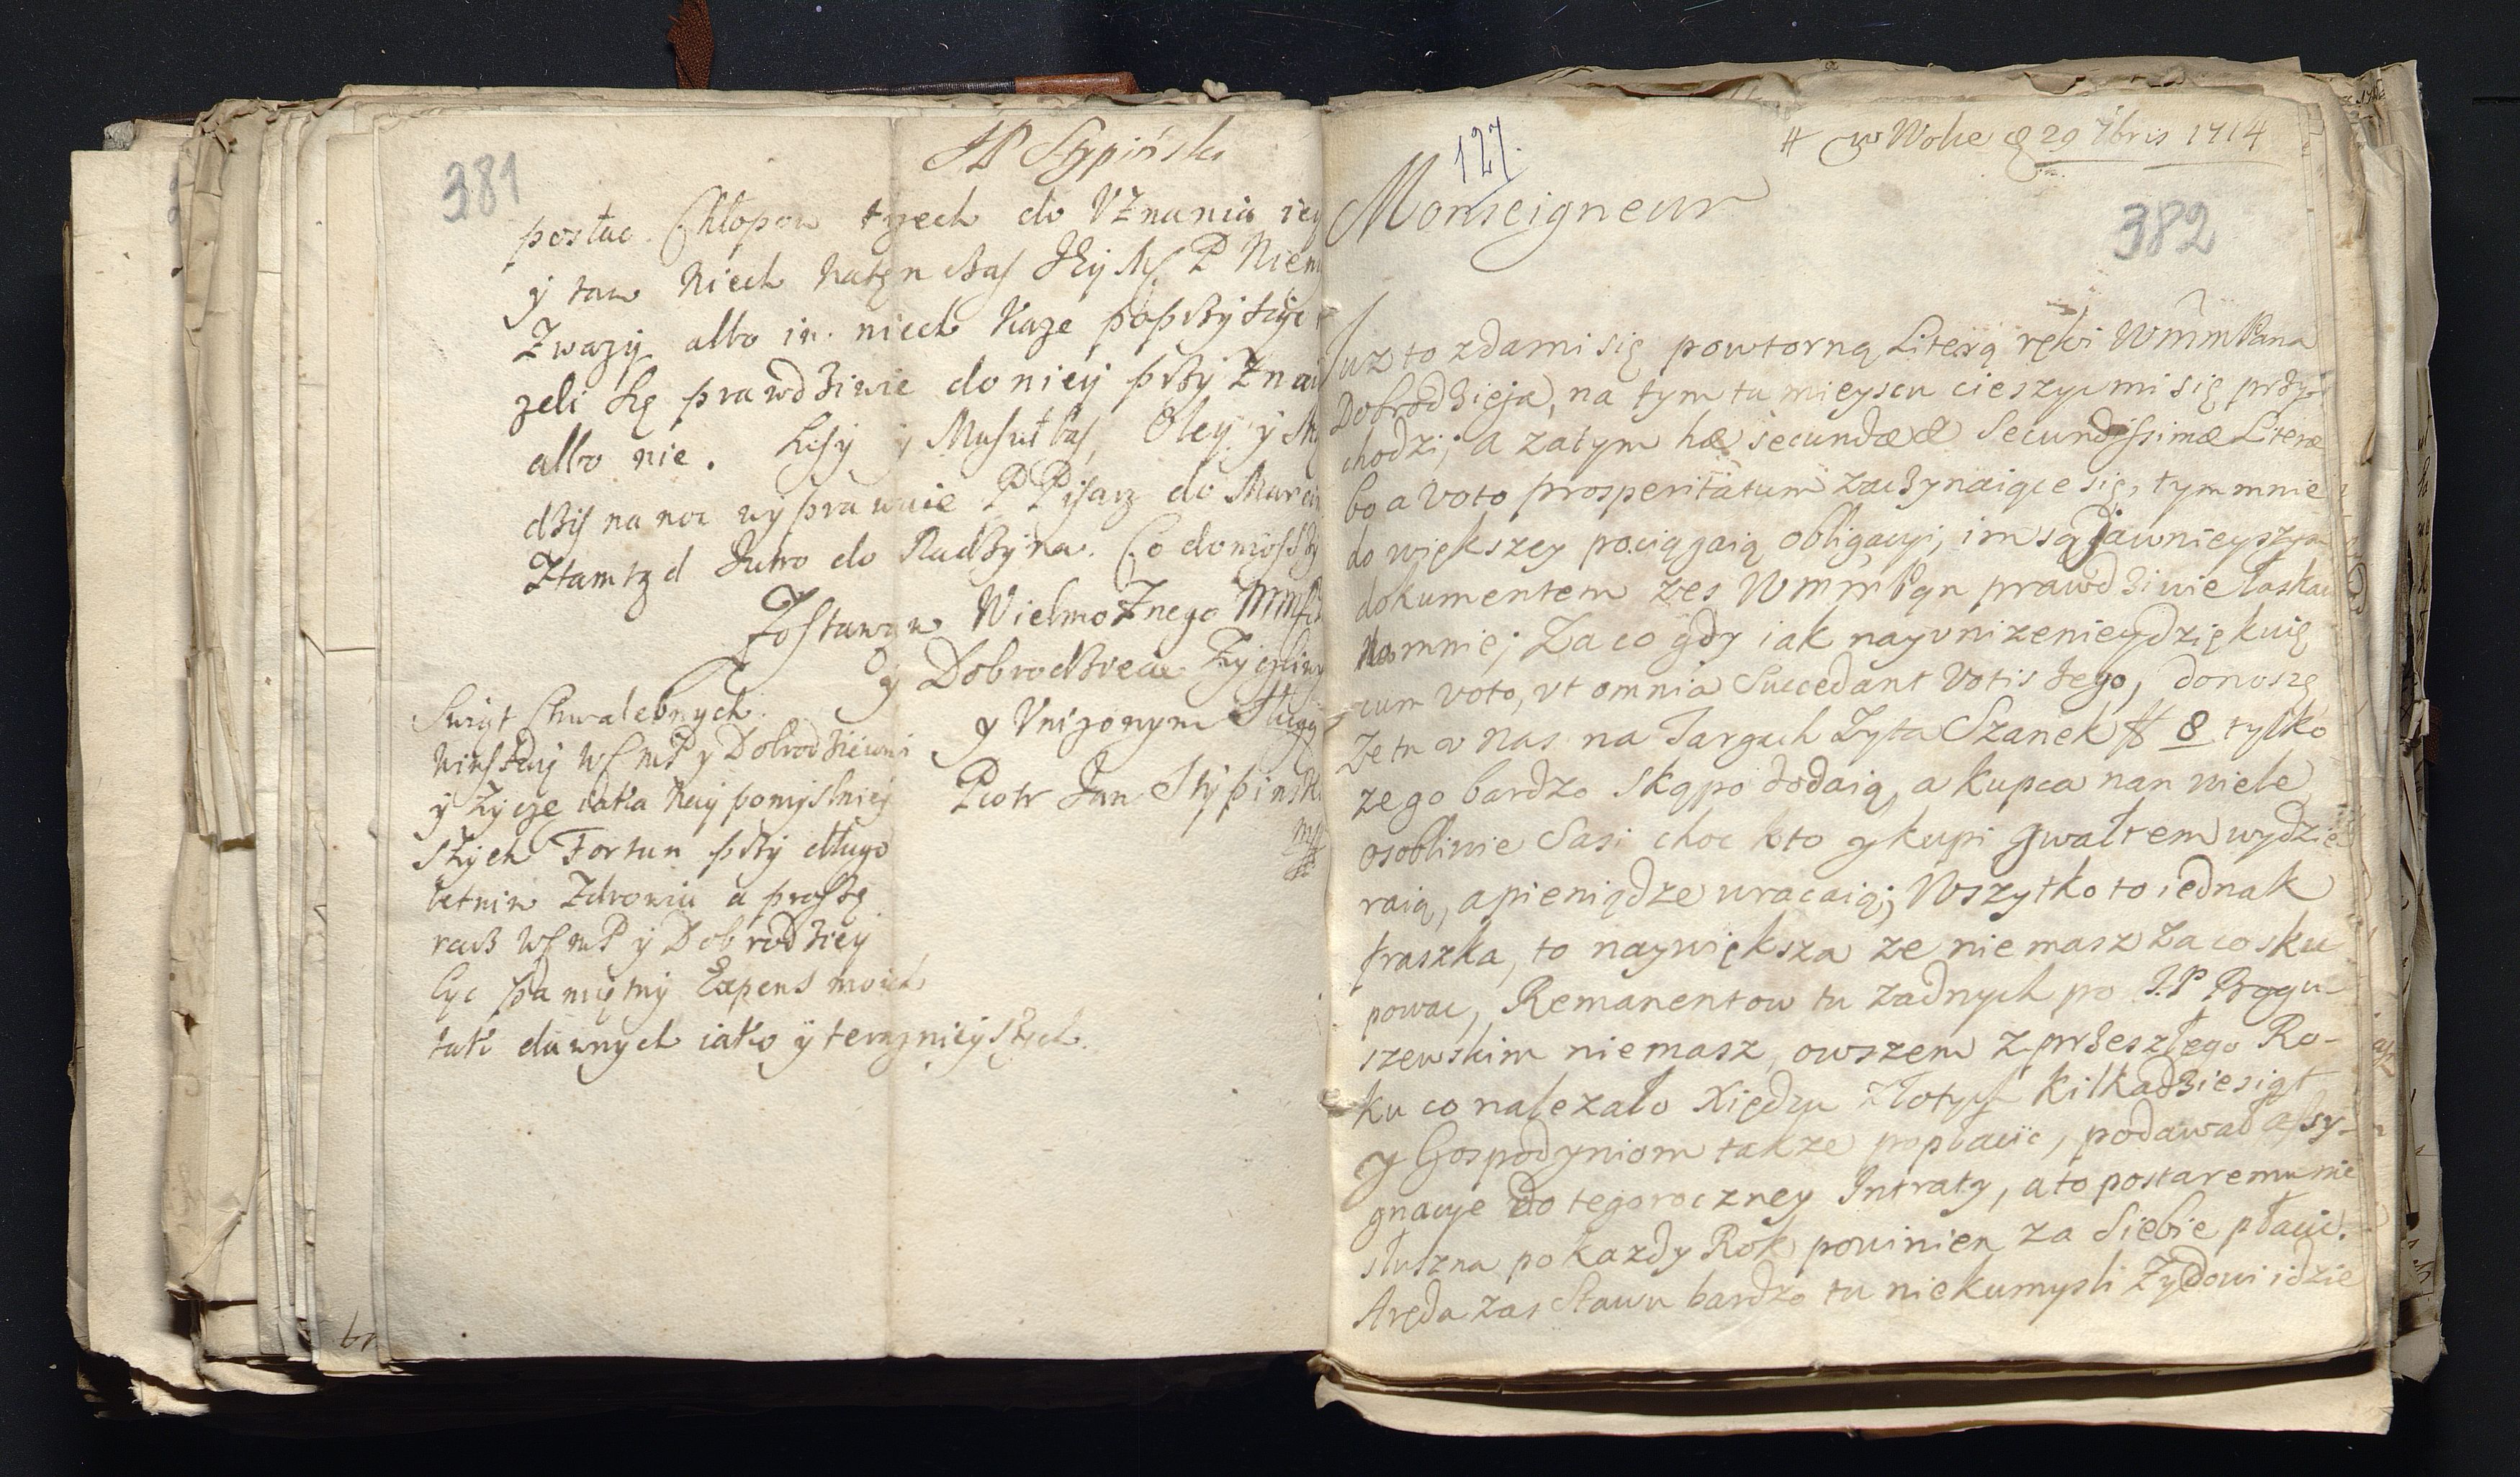 381
JP Stypiński
posłac Chłopow trzech do Vznania iey
y tam Niech Natęn czas JEyMć P Niem
Zwazy albo in. niech Kaze poprzysiąc
zeli Się prawdziwie do niey przyznai
albo nie. Lisy y Musułbas, Oley y
dziś na noc wyprawuie P Pisarz do Marcin
Ztamtąd Jutro do Radzyna. Co doniosszy
Zostawam Wielmoznego WmmP
y Dobrodzieia Zyczliwy
y Vnizonym Sługą
Piotr Jan Stypinski
mp
Swiąt Chwalebnych
Winszuiy WśmP y Dobrodzieiowi
y Zyczę iaka Naypomyslniey
szych Fortun przy długo
letnim Zdrowiu a proszę
racz WśmP y Dobrodziey
byc pamiętny Expens moich
tak dawnych iako y teraznieyszych.
127.
w Wolce d 29 7bris 1714
382
Monseigneur
Juz to zda mi się powtorną Literą ręki WmmPana
Dobrodzieja, na tym tu mieyscu cieszyc mi się przy-
chodzi; a zatym hæ secundæ & Secundissimæ Literæ
bo a voto prosperitatum zaczynaiące się, tym mnie
do większey pociągaią obligacyi, im są jawnieyszym
dokumentem zes WmmPan prawdziwie łaskaw
na mnie; Za co gdy iak nayvnizeniey dziękuię
cum voto, vt omnia Succedant Votis Jego, donoszę
Ze tu v nas na Targach Zyta Szanek fl 8 tylko
zego bardzo skąpo dodaią, a kupca nan wiele
osobliwie Sasi choc kto y kupi gwałtem wydzie
raią, a pieniądze wracaią; Wszytko to iednak
fraszka, to naywiększa ze niemasz za co sku
powac, Remanentow tu zadnych po J.P Rogu-
szewskim niemasz, owszem z przeszłego Ro-
ku co nalezało Xiędzu Złotych kilkadziesiąt
y Gospodyniom takze popłacic, podawał assy-
gnacye do tegoroczney Intraty, a to postaremu nie
słuszna po kazdy Rok powinien za Siebie płacic.
Aręda zas Stawu bardzo tu niekumysli Zydowi idzie